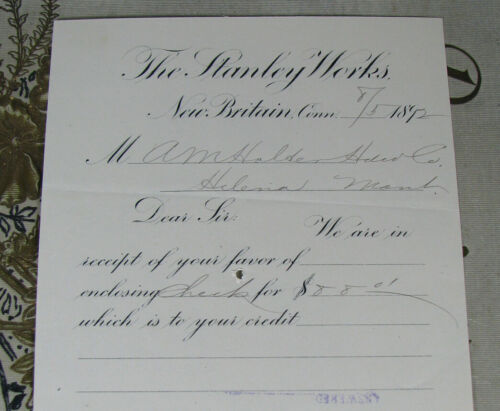 The Stanley Works.
New Britain, Conn. 8/5 1892
M A M Holder Hdw Co.
Helena Mont.
Dear Sir: We are in
receipt of your favor of
enclosing check for $88.01
which is to your credit